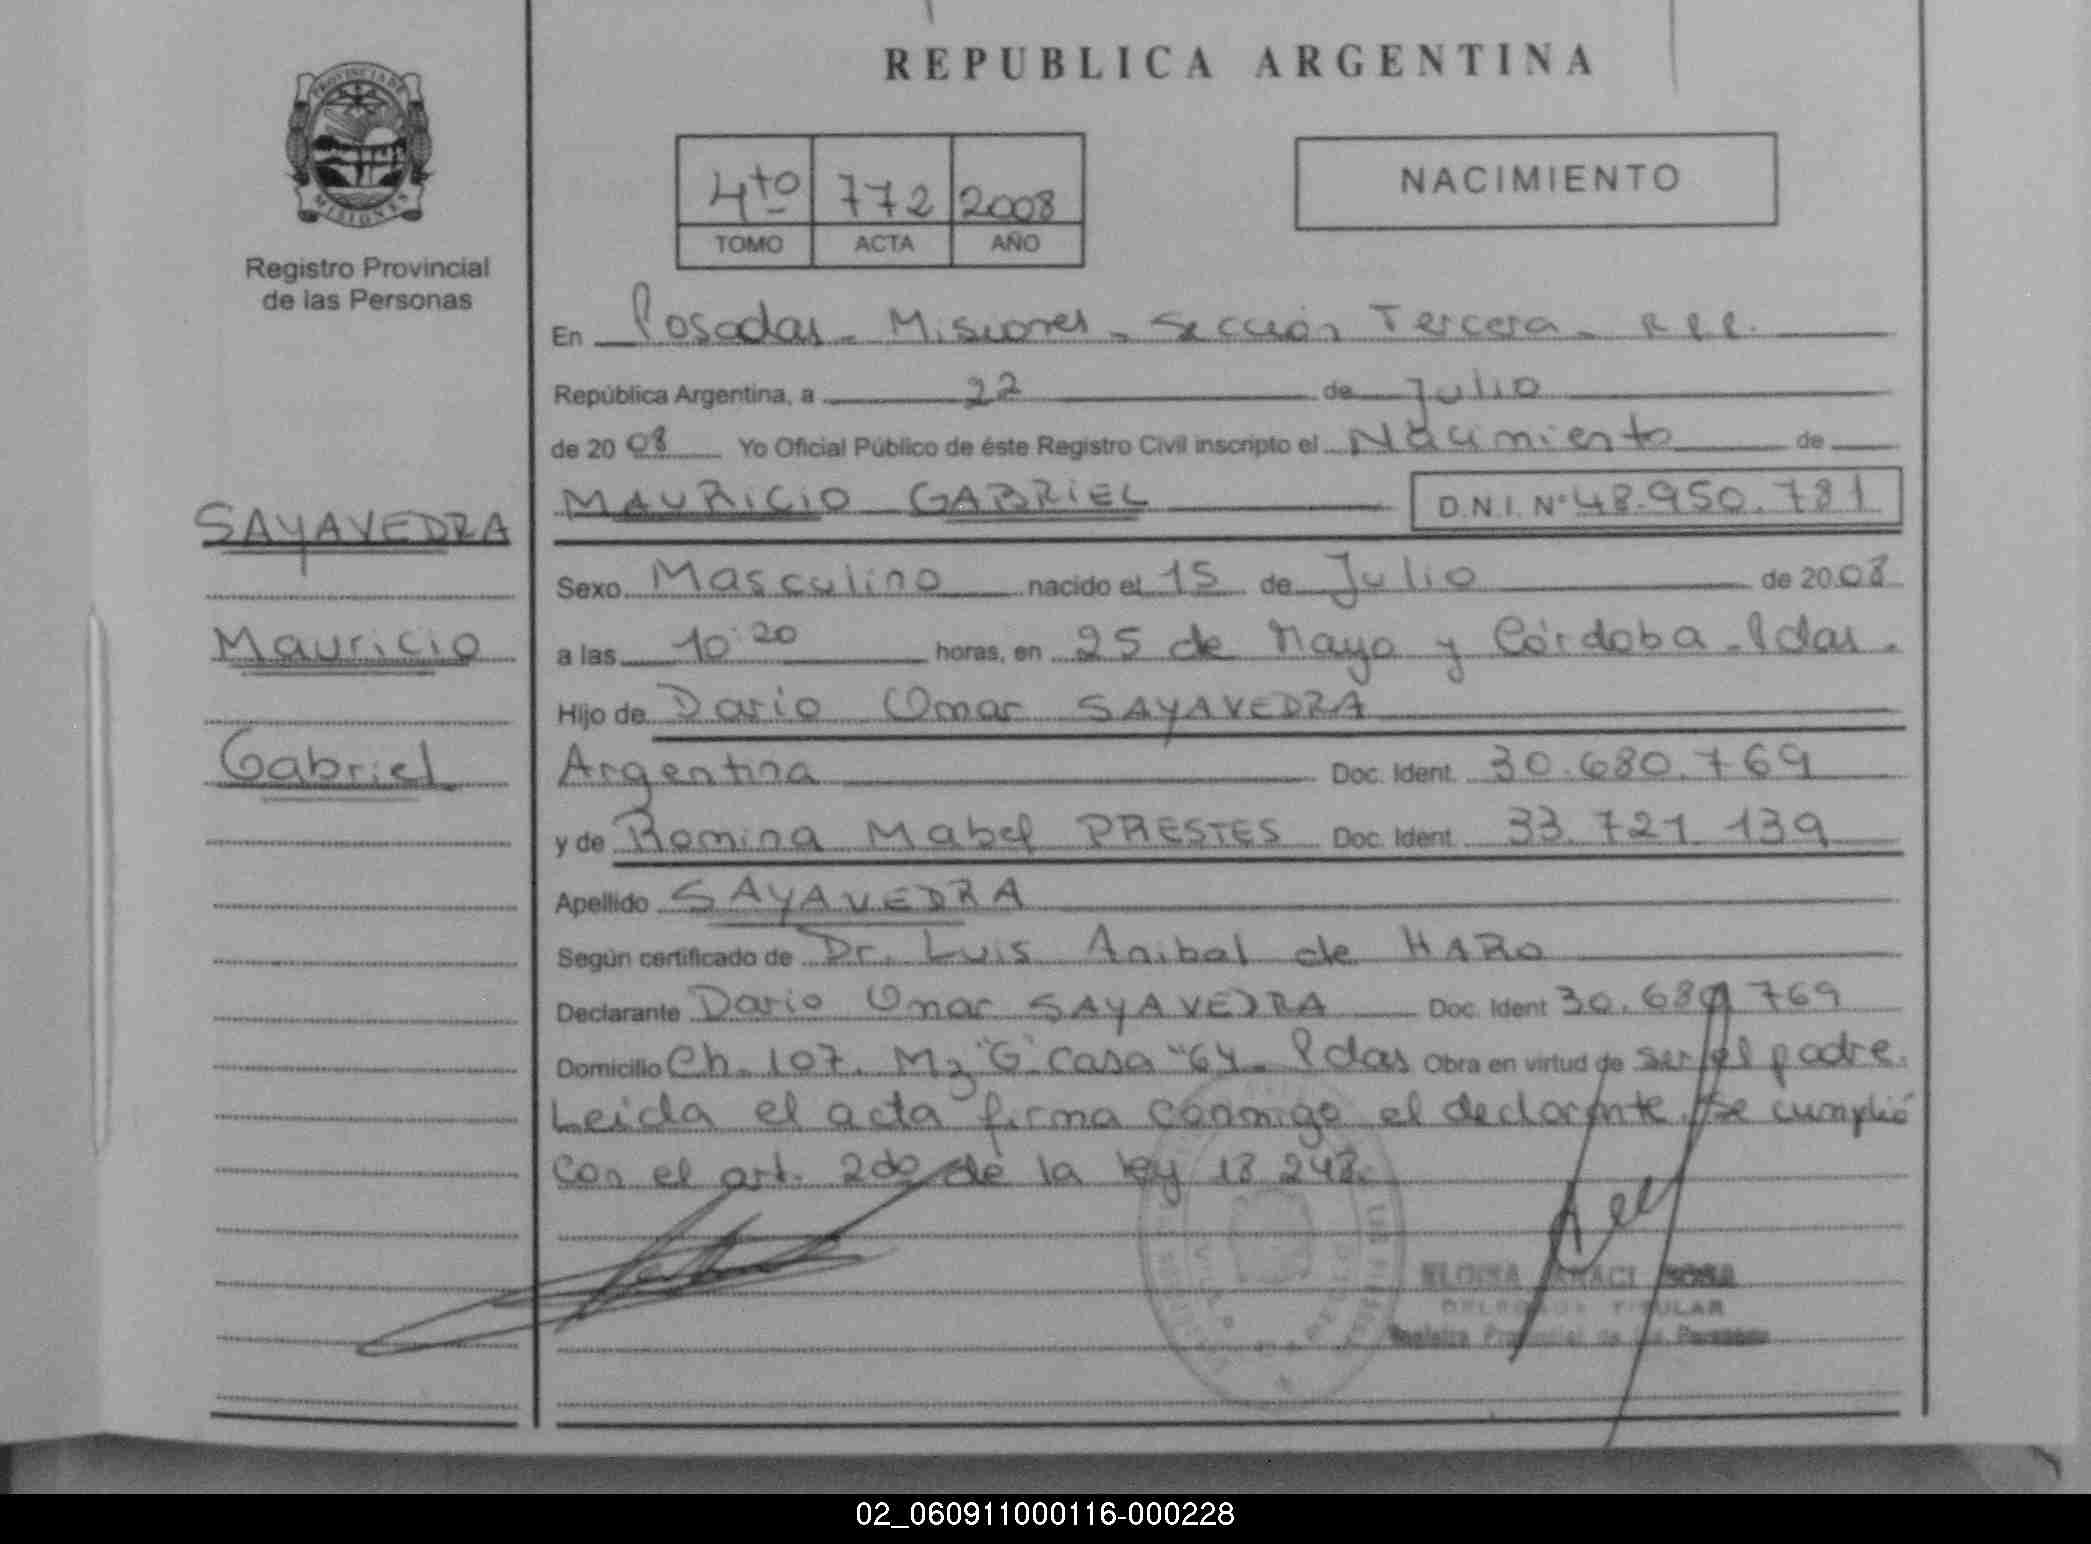 REPUBLICA ARGENTINA
PROVINCIA DE
MISIONES
Registro Provincial
de las Personas
4to 772 2008
TOMO ACTA AÑO
NACIMIENTO
En Posadas - Misiones - Sección Tercera - R.P.P.
República Argentina, a 22 de Julio
de 2008 Yo Oficial Público de éste Registro Civil inscripto el Nacimiento de
MAURICIO GABRIEL D.N.I. Nº 48.950.781
SAYAVEDRA
Mauricio
Gabriel
Sexo Masculino nacido el 15 de Julio de 2008
a las 10:20 horas, en 25 de Mayo y Córdoba - Pdas.
Hijo de Dario Omar SAYAVEDRA
Argentina Doc. Ident. 30.680.769
y de Romina Mabel PRESTES Doc. Ident. 33.721.139
Apellido SAYAVEDRA
Según certificado de Dr. Luis Anibal de HARO
Declarante Dario Omar SAYAVEDRA Doc. Ident 30.680.769
Domicilio Ch. 107. Mz "G" casa "64- Pdas Obra en virtud de ser el padre.
Leida el acta firma conmigo el declarante. Se cumplió
con el art. 2do de la ley 18.248.
ELOISA ARACI SOSA
DELEGADA TITULAR
Registro Provincial de las Personas
02_060911000116-000228